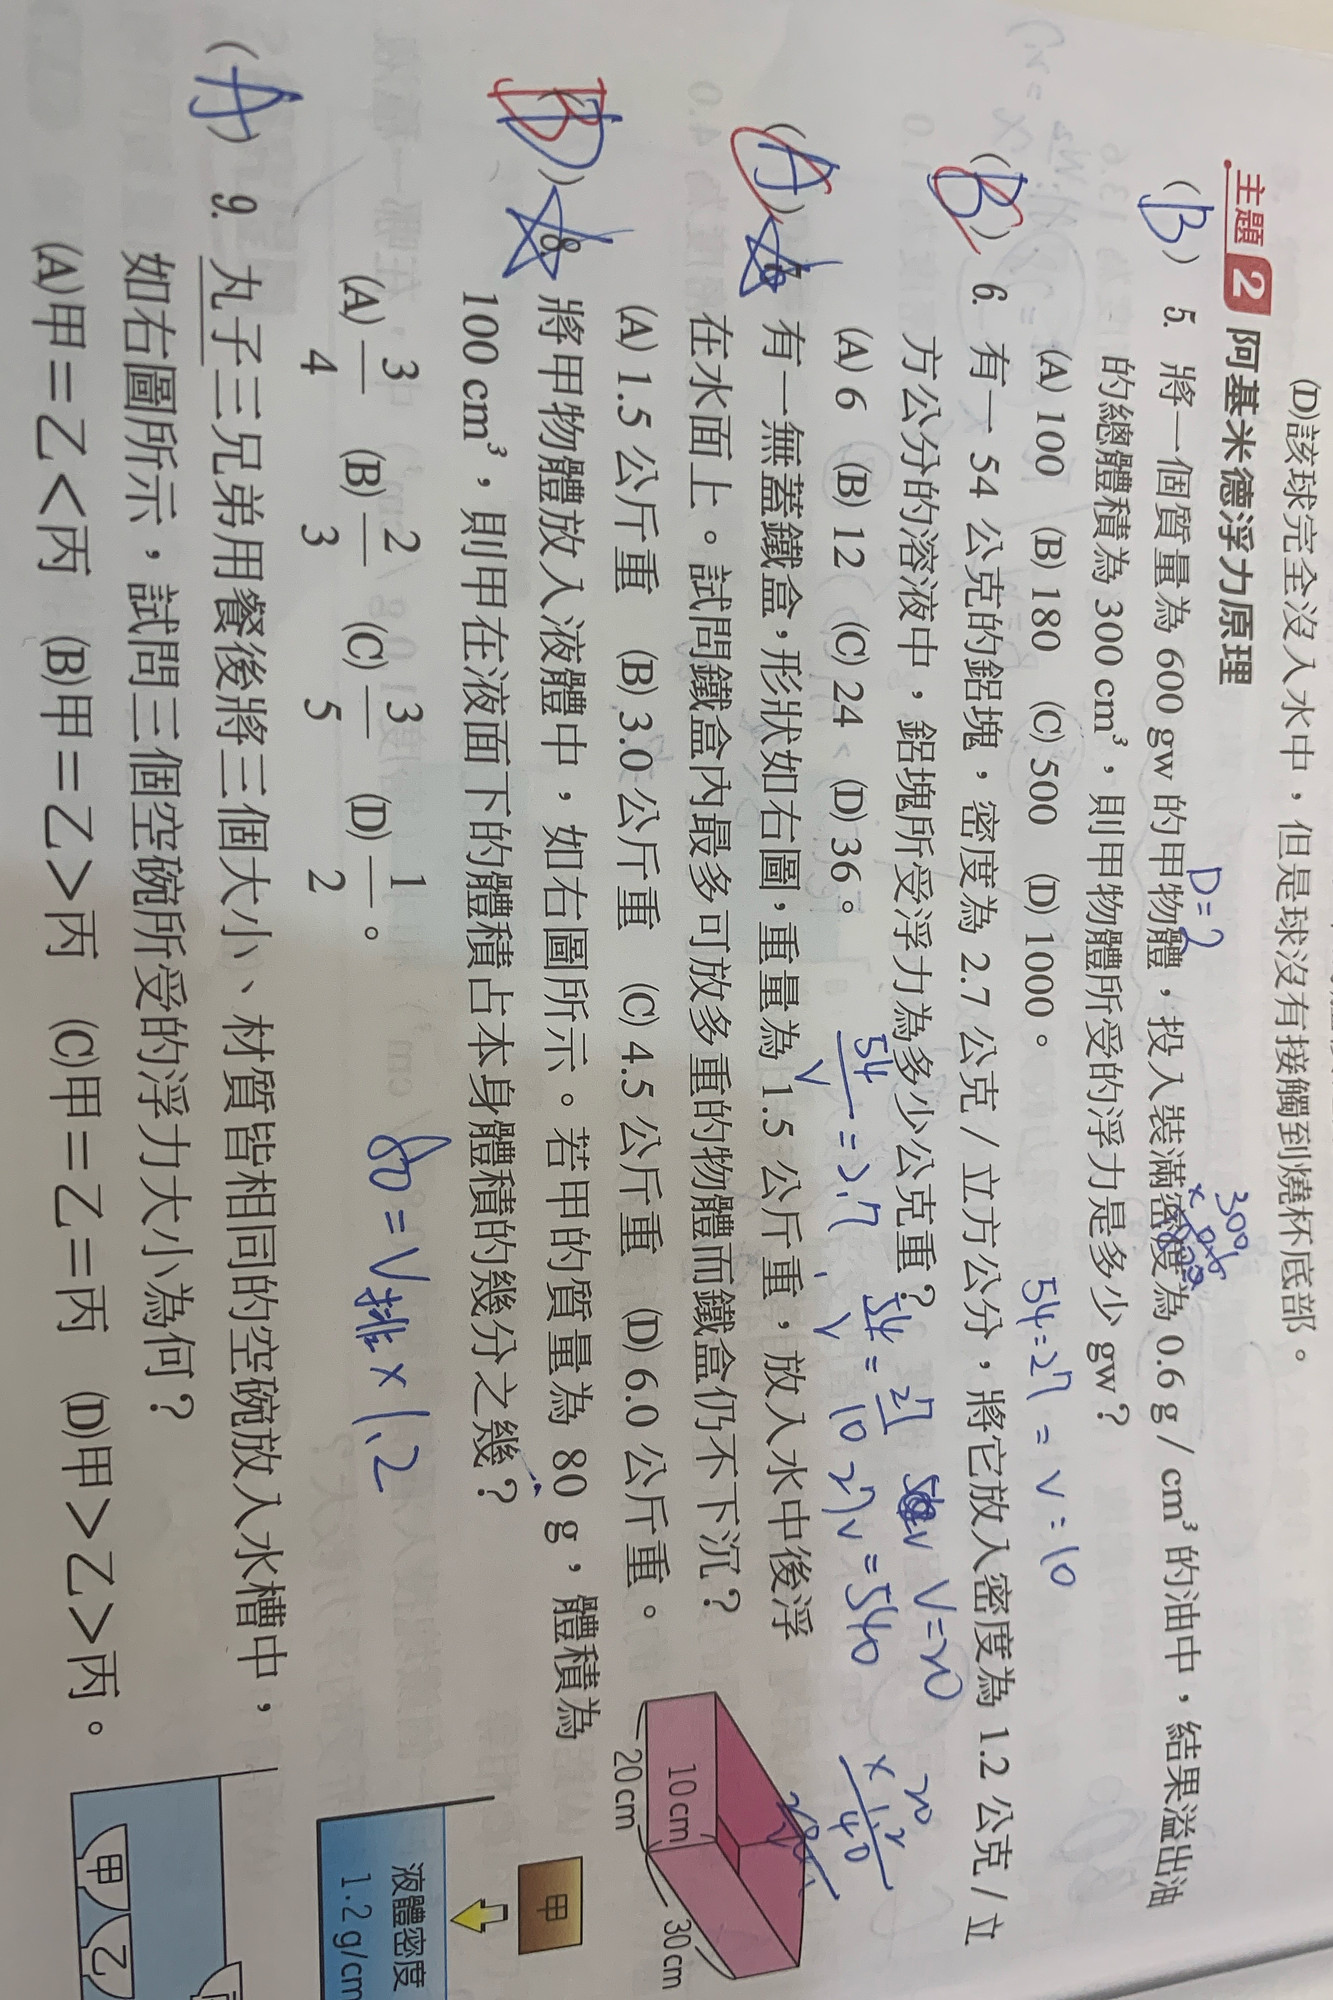 (D)該球完全沒入水中，但是球沒有接觸到燒杯底部。
主題 2 阿基米德浮力原理
(B) 5. 將一個質量為 600 gw 的甲物體，投入裝滿密度為 0.6 g / cm³ 的油中，結果溢出油
的總體積為 300 cm³，則甲物體所受的浮力是多少 gw？
(A) 100 (B) 180 (C) 500 (D) 1000。
D=2
300
54=27 = V=10
(B) 6. 有一 54 公克的鋁塊，密度為 2.7 公克 / 立方公分，將它放入密度為 1.2 公克 / 立
方公分的溶液中，鋁塊所受浮力為多少公克重？
(A) 6 (B) 12 (C) 24 (D) 36。
54/V = 2.7
54/V = 27/10
27V=540
V=20
20
40
(A) 有一無蓋鐵盒，形狀如右圖，重量為 1.5 公斤重，放入水中後浮
在水面上。試問鐵盒內最多可放多重的物體而鐵盒仍不下沉？
(A) 1.5 公斤重 (B) 3.0 公斤重 (C) 4.5 公斤重 (D) 6.0 公斤重。
10 cm
20 cm
30 cm
(B) 8. 將甲物體放入液體中，如右圖所示。若甲的質量為 80 g，體積為
100 cm³，則甲在液面下的體積占本身體積的幾分之幾？
(A) 3/4 (B) 2/3 (C) 3/5 (D) 1/2。
80=V排×1.2
甲
液體密度
1.2 g/cm
(A) 9. 丸子三兄弟用餐後將三個大小、材質皆相同的空碗放入水槽中，
如右圖所示，試問三個空碗所受的浮力大小為何？
(A)甲＝乙＜丙 (B)甲＝乙＞丙 (C)甲＝乙＝丙 (D)甲＞乙＞丙。
甲
乙